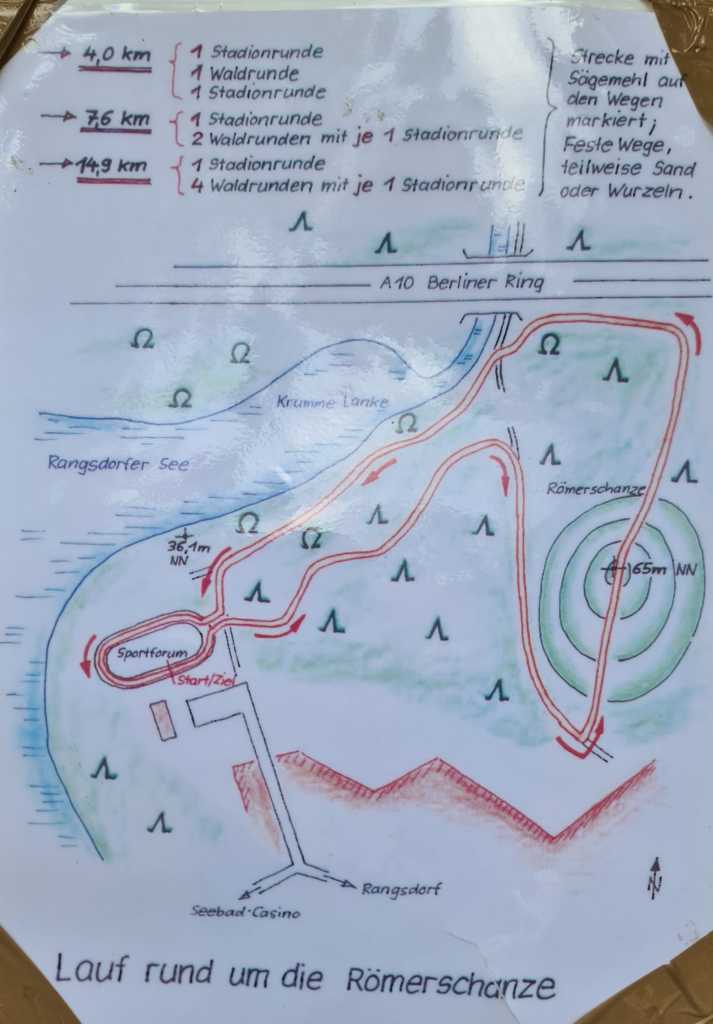 4,0 km
1 Stadionrunde
1 Waldrunde
1 Stadionrunde
7,6 km
1 Stadionrunde
2 Waldrunden mit je 1 Stadionrunde
14,9 km
1 Stadionrunde
4 Waldrunden mit je 1 Stadionrunde
Strecke mit
Sägemehl auf
den Wegen
markiert;
Feste Wege,
teilweise Sand
oder Wurzeln.
A10 Berliner Ring
Krumme Lanke
Rangsdorfer See
Römerschanze
36,1m
NN
65m NN
Sportforum
Start/Ziel
Rangsdorf
Seebad-Casino
N
Lauf rund um die Römerschanze